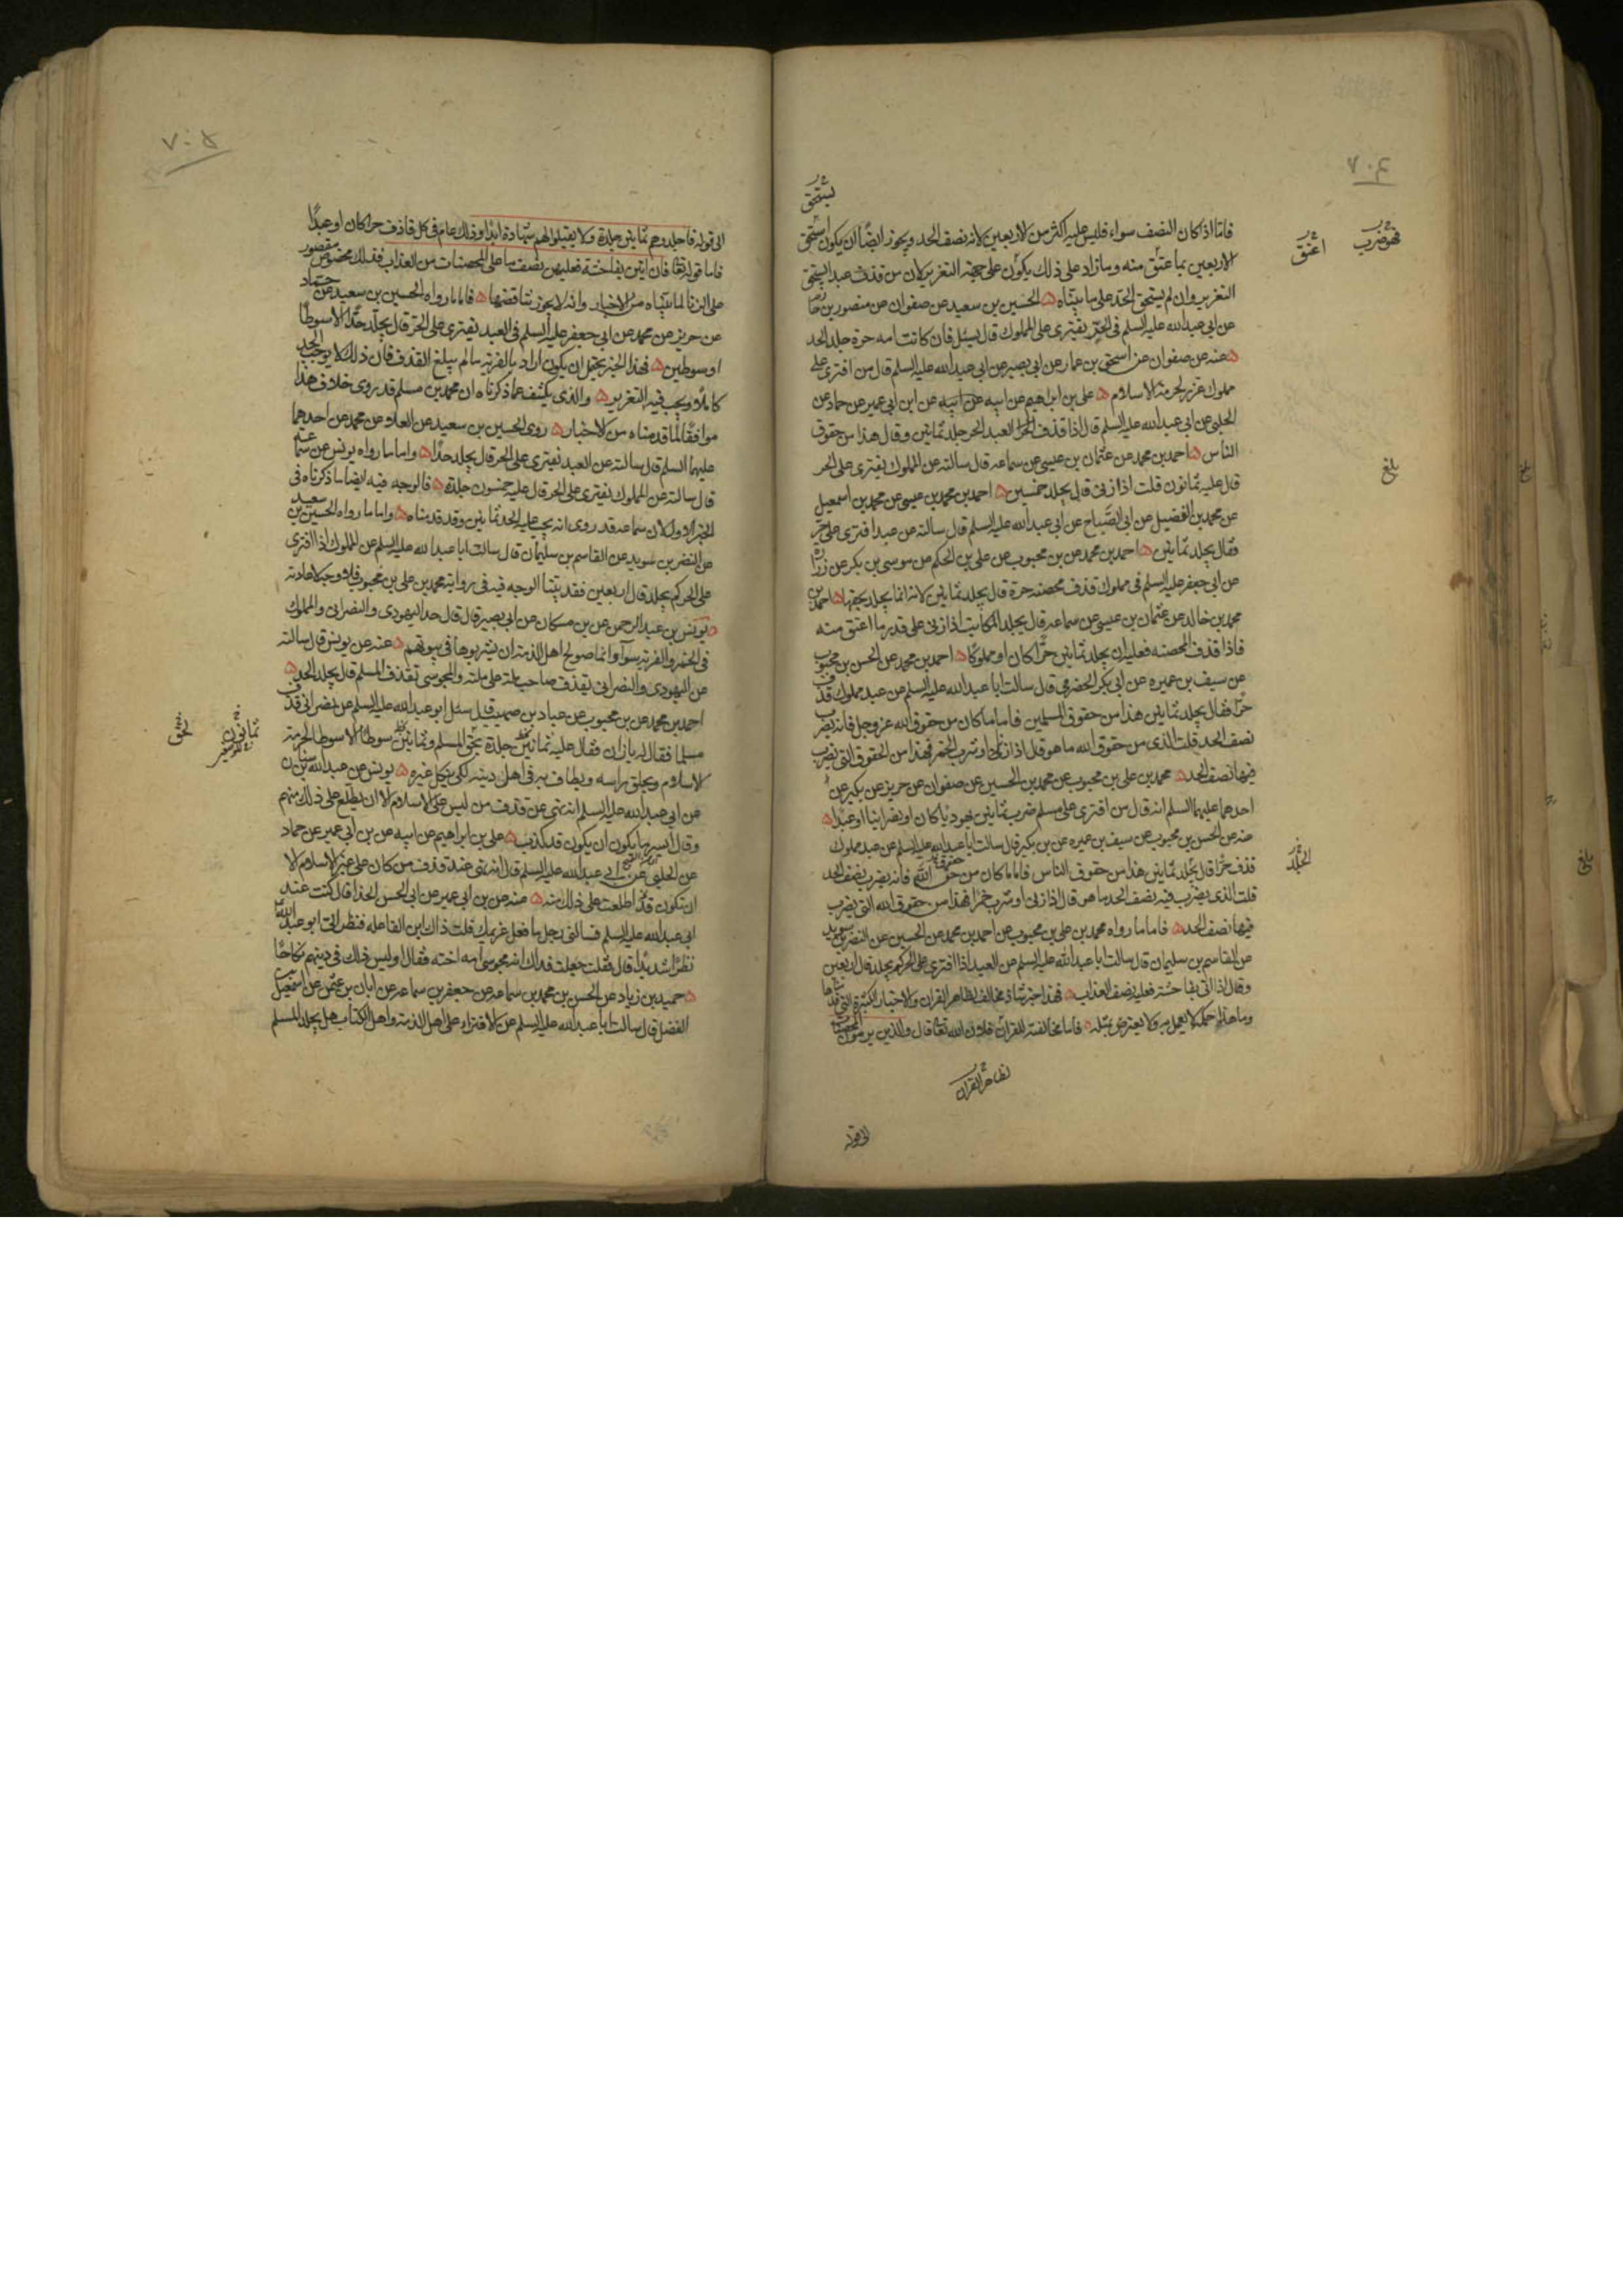 ٧٠٤
يستحق
فاما اذا كان النصف سواء فليس عليه اكثر من الاربعين لانه نصف الحد ويجوز ايضا ان يكون استحق
الاربعين بما عتق منه وما زاد على ذلك يكون على جهة التعزير لان من قذف عبدا يستحق
التعزير وان لم يستحق الحد على ما بيناه الحسين بن سعيد عن صفوان عن منصور بن حا
عن ابي عبدالله عليه السلم في الحر يفترى على المملوك قال يسئل فان كانت امه حرة جلد الحد
عنه عن صفوان عن اسحق بن عمار عن ابي بصير عن ابي عبدالله عليه السلم قال من افترى على
مملوك عزر لحرمة الاسلام على بن ابراهيم عن ابيه عن ابن ابي عمير عن حماد عن
الحلبي عن ابي عبدالله عليه السلم قال اذا قذف العبد الحر جلد ثمانين وقال هذا من حقوق
الناس احمد بن محمد عن عثمان بن عيسى عن سماعه قال سالته عن المملوك يفترى على الحر
قال عليه ثمانون قلت اذا زنى قال يجلد خمسين احمد بن محمد بن عيسى عن محمد بن اسمعيل
عن محمد بن الفضيل عن ابي الصباح عن ابي عبدالله عليه السلم قال سالته عن عبد افترى على حر
وقال يجلد ثمانين احمد بن محمد عن بن محبوب عن على بن الحكم عن موسى بن بكر عن زرا
عن ابي جعفر عليه السلم في مملوك قذف محصنه حرة قال يجلد ثمانين لانه انما يجلد بحقها احمد بن
محمد بن خالد عن عثمان بن عيسى عن سماعه قال يجلد المكاتب اذا زنى على قدر ما اعتق منه
فاذا قذف المحصنه فعليه ان يجلد ثمانين حرا كان او مملوكا احمد بن محمد عن الحسن بن محبوب
عن سيف بن عميره عن ابي بكر الحضرمي قال سالت ابا عبدالله عليه السلم عن عبد مملوك قذف
حرا فقال يجلد ثمانين هذا من حقوق المسلمين فاما ما كان من حقوق الله عز وجل فانه يضرب
نصف الحد قلت الذى من حقوق الله ما هو قال اذا زنى او شرب الخمر فهذا من الحقوق التى يضرب
فيها نصف الحد محمد بن على بن محبوب عن محمد بن الحسين عن صفوان عن حريز عن بكير عن
احدهما عليهما السلم انه قال من افترى على مسلم ضرب ثمانين يهوديا كان او نصرانيا او عبدا
عنه عن الحسن بن محبوب عن سيف بن عميره عن بن بكير قال سالت ابا عبدالله عليه السلم عن عبد مملوك
قذف حرا قال يجلد ثمانين هذا من حقوق الناس فاما ما كان من حقوق الله فانه يضرب نصف الحد
قلت الذى يضرب فيه نصف الحد ما هو قال اذا زنى او شرب خمرا فهذا من حقوق الله التى يضرب
فيها نصف الحد فاما ما رواه محمد بن على بن محبوب عن احمد بن محمد عن الحسين عن النضر بن سويد
عن القاسم بن سليمان قال سالت ابا عبدالله عليه السلم عن العبد اذا افترى على الحر كم يجلد قال اربعين
وقال اذا اتى بفاحشة فعليه نصف العذاب فهذا خبر شاذ مخالف لظاهر القران والاخبار الكثيرة التى قد
وما هذا حكمه لا يعمل به ولا يعترض بمثله فاما مخالفته للقران فلان الله تعا قال والذين يرمون المحصنات
لظاهر القران
الى قوله
فهو ضرب
اعتق
بلغ
الجلد
بلغ
٧٠٥
الى قوله فاجلدوهم ثمانين جلدة ولا يقبلوا لهم شهادة ابدا وذلك عام في كل قاذف حرا كان او عبدا
فاما قوله تعا فان اتين بفاحشة فعليهن نصف ما على المحصنات من العذاب فذلك مخصوص مقصور
على الزنا لما بيناه من الاخبار وانه لا يجوز تناقضها فاما ما رواه الحسين بن سعيد عن حماد
عن حريز عن محمد عن ابي جعفر عليه السلم في العبد يفترى على الحر قال يجلد حدا الا سوطا
او سوطين فهذا الخبر يحتمل ان يكون اراد بالفرية ما لم يبلغ القذف فان ذلك لا يوجب الحد
كاملا ويجب فيه التعزير والذى يكشف عما ذكرناه ان محمد بن مسلم قد روى خلاف هذا
موافقا لما قدمناه من الاخبار روى الحسين بن سعيد عن العلاء عن محمد عن احدهما
عليهما السلم قال سالته عن العبد يفترى على الحر قال يجلد حدا واما ما رواه يونس عن سماعة
قال سالته عن المملوك يفترى على الحر قال عليه خمسون جلدة فالوجه فيه ايضا ما ذكرناه في
الخبر الاول لان سماعه قد روى انه يجب عليه الحد ثمانين وقد قدمناه واما ما رواه الحسين بن سعيد
عن النضر بن سويد عن القاسم بن سليمان قال سالت ابا عبدالله عليه السلم عن المملوك اذا افترى
على الحر كم يجلد قال اربعين فقد بينا الوجه فيه في رواية محمد بن على بن محبوب فلا وجه لاعادته
يونس بن عبد الرحمن عن بن مسكان عن ابي بصير قال قال حد اليهودى والنصرانى والمملوك
في الخمر والفرية سوآء وانما صولح اهل الذمة ان يشربوها في بيوتهم عنه عن يونس قال سالته
عن اليهودى والنصرانى يقذف صاحب ملة على ملته والمجوسى يقذف المسلم قال يجلد الحد
احمد بن محمد عن بن محبوب عن عباد بن صهيب قال سئل ابو عبدالله عليه السلم عن نصرانى قذف
مسلما فقال له يا زان فقال عليه ثمانين جلدة بحق المسلم وثمانين سوطا الا سوطا لحرمة
الاسلام ويحلق راسه ويطاف به في اهل دينه لكى ينكل غيره يونس عن عبدالله بن سنان
عن ابي عبدالله عليه السلم انه نهى عن قذف من ليس على الاسلام الا ان يطلع على ذلك منهم
وقال ايسر ما يكون ان يكون قد كذب على بن ابراهيم عن ابيه عن بن ابي عمير عن حماد
عن الحلبي عن ابي عبدالله عليه السلم قال انه نهى عند قذف من كان على غير الاسلام الا
ان تكون قد اطلعت على ذلك منه عنه عن بن ابي عمير عن ابي الحسن الحذا قال كنت عند
ابي عبدالله عليه السلم فسالنى رجل ما فعل غريمك قلت ذاك ابن الفاعله فنظر الى ابو عبدالله
نظرا شديدا قال فقلت جعلت فداك انه مجوسى امه اخته فقال اوليس ذلك في دينهم نكاحا
حميد بن زياد عن الحسن بن محمد بن سماعه عن جعفر بن سماعه عن ابان بن عثمن عن اسمعيل
الفضل قال سالت ابا عبدالله عليه السلم عن الافتراء على اهل الذمة واهل الكتاب هل يجلد المسلم
ثمانون
لحق